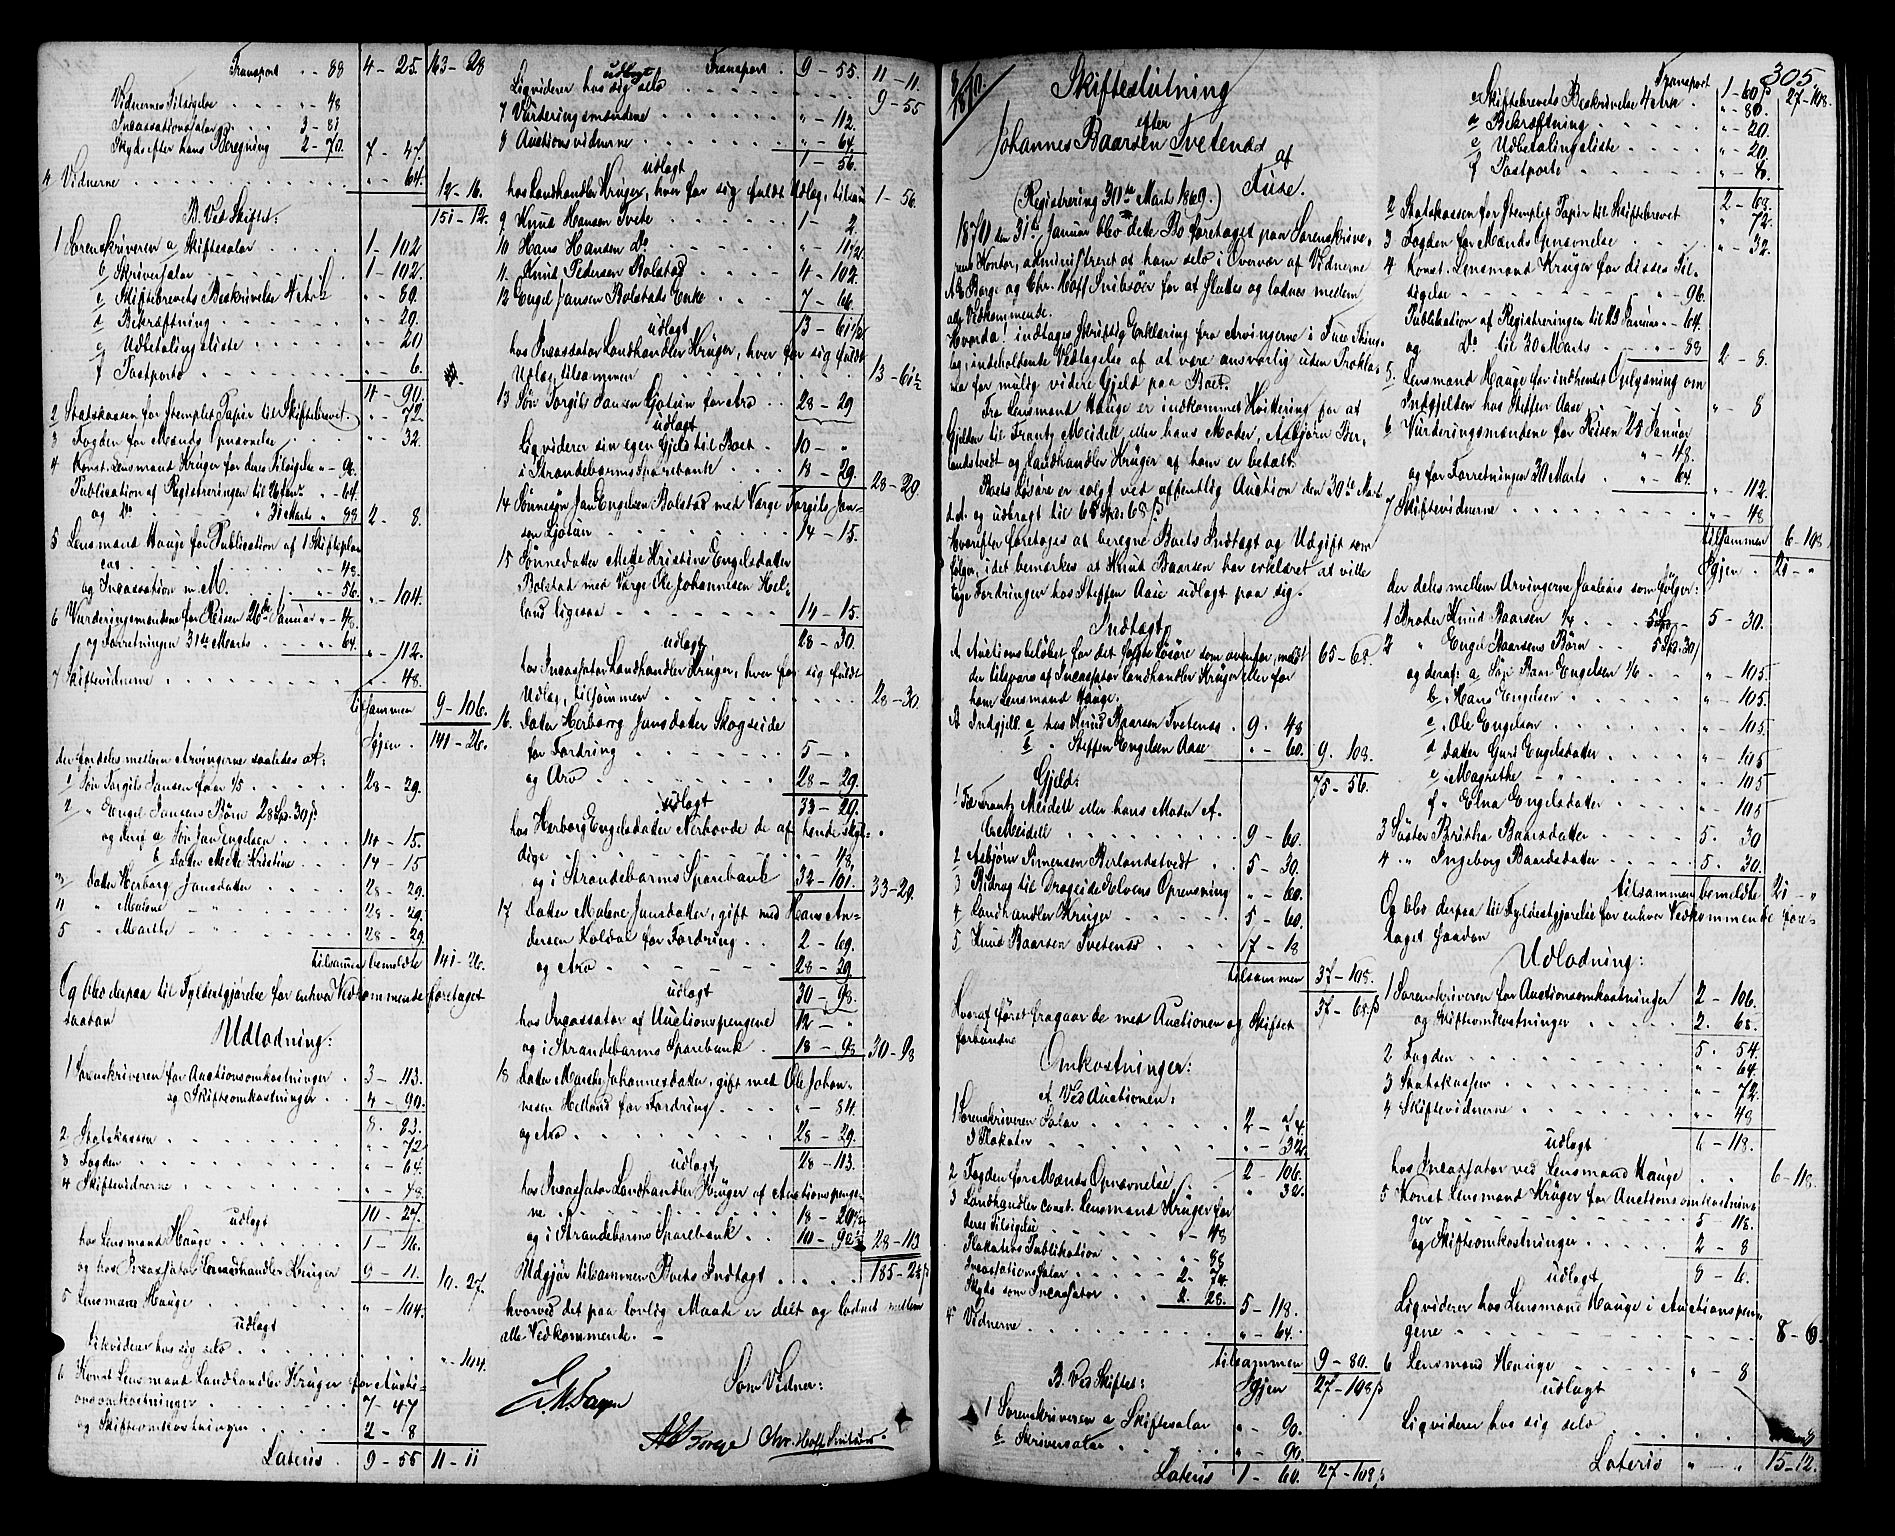 Transport . . 88 4 - 25. 163 - 28
Vidnernes Tilsigelse . . " - 48
Incassationssalar . . 3 - 81
Skyds efter hans Beregning 2 - 70. 7 - 47.
4 Vidnerne . . . . " - 64. 12 - 16.
B. Ved Skiftet: 151 - 12.
1 Sorenskriveren a Skiftesalar . . 1 - 102
b Skriversalar . . . 1 - 102.
c Skiftebrevets Beskrivelse 4 Ark " - 80.
d Bekræftning . . . " - 20.
e Udbetalingsliste . . . " - 20
f Postporto . . . " - 6.
4 - 90.
2 Statskassen for stemplet Papir til Skiftebrevet " - 72
3 Fogden for Mænds Opnævnelse . . " - 32.
4 Konst. Lensmand Krüger for deres Tilsigelse " - 96.
Publication af Registreringen til " - 64.
og Do . . 31 Marts " 88 2 - 8.
5 Lensmand Hauge for Publication af 1 Skifteplacat
. . . " - 48.
og Incassation m. M. . . " - 56. " - 104.
6 Vurderingsmændene for Reisen 26de Januar " - 48.
og Forretningen 31te Marts . . " - 64. " - 112.
7 Skiftevidnerne . . . " - 48.
tilsammen 9 - 106.
Igjen . 141 - 26.
der fordeles mellem Arvingerne saaledes at:
1 Søn Torgils Jansen faar 1/5 . . 28 - 29.
2 " Engel Jansens Børn 28 Spd. 30 ß
og deraf a Søn Jan Engelsen . . 14 - 15.
b Datter Mette Kristine . . 14 - 15
3 Datter Herborg Jansdatter . . 28 - 29.
4 " Malene - " - . . 28 - 29.
5 " Marthe - " - . . 28 - 29
tilsammen bemeldte 141 - 26.
Og blev derpaa til Fyldestgjørelse for enhver Vedkommende foretaget
saadan
Udlodning:
1 Sorenskriveren for Auctionsomkostninger . 3 - 113.
og Skifteomkostninger . . 4 - 90.
8. 83.
2 Statskassen . . . " - 72
3 Fogden . . . " - 64.
4 Skiftevidnerne . . . " - 48
udlagt 10 - 27.
hos Lensmand Hauge . . . 1 - 16.
og hos Incassator Landhandler Krüger 9 - 11. 10 - 27.
5 Lensmand Hauge . . . " - 104.
udlagt
Likviderer hos sig selv . . . " - 104.
6 Konst Lensmand Landhandler Krüger for Aucti-
onsomkostninger . . . 7 - 47
og Skifteomkostninger . . 2 - 8
Lateris . 9 - 55 11 - 11
udlagt Transport . 9 - 55. 11 - 11.
Liqviderer hos sig selv . . . 9 - 55
7 Vurderingsmændene . . . " - 112.
8 Auctionsvidnerne . . . " - 64.
udlagt 1 - 56.
hos Landhandler Krüger, hver for sig fuldt Udlæg, tilsam 1 - 56.
9 Knud Hansen Tvete . . . 1 - 2.
10 Hans Hansen Do . . .
11. Knud Pedersen Bolstad . . . 4 - 102.
12 Engel Jansen Bolstads Enke . . 7 - 66.
udlagt 13 - 61 1/2
hos Incassator Landhandler Krüger, hver for sig fuldt
Udlæg, tilsammen . . . 13 - 61 1/2
13 Søn Torgils Jansen Gjotun for Arv . . 28 - 29
udlagt
Liqviderer sin egen Gjeld til Boet . 10 - "
i Strandebarms Sparebank . . 18 - 29. 28 - 29
14 Sønnesøn Jan Engelsen Bolstad med Værge Torgils Jan-
sen Gjotun . . . 14 - 15.
15 Sønnedatter Mette Kristine Engelsdatter
Bolstad med Værge Ole Johannesen Hel-
land ligesaa . . . 14 - 15.
udlagt 28 - 30.
hos Incassator Landhandler Krüger, hver for sig fuldt
Udlæg, tilsammen . . . 28 - 30.
16. Datter Herborg Jansdatter Skogseide
for Fordring . . . 5 - ".
og Arv . . . 28 - 29.
udlagt 33 - 29.
hos Herborg Engelsdatter Nerhovde de af hende skyl-
dige . . . " - 48,
og i Strandebarms Sparebank 32 - 101. 33 - 29.
17 Datter Malene Jansdatter, gift med Hans An-
dersen Koldal for Fordring . . 2 - 69.
og Arv . . . 28 - 29.
udlagt 30 - 98.
hos Incassator af Auctionspengene 12 - "
og i Strandebarms Sparebank . 18 - 98 30 - 98
18 Datter Marthe Johannesdatter, gift med Ole Johan-
nesen Helland for Fordring . . " - 84.
og Arv . . . 28 - 29.
udlagt 28 - 113.
hos Incassator Landhandler Krüger af Auctionspenge-
ne . . . 18 - 20 1/2
og i Strandebarms Sparebank . . 10 - 92 1/2 28 - 113
Udgjør tilsammen Boets Indtægt . . . 185 - 28 ß
hvorved det paa lovlig Maade er delt og lodnet mellem
alle Vedkommende. -
Som Vidner:
AE Borge Chr. Hoff Svilosen.
305.
Skifteslutning
efter
Johannes Baarsen Tvetenæs
af
Fuse.
(Registrering 30te Marts 1869.)
1870 den 31te Januar blev dette Bo foretaget paa Sorenskrive-
rens Kontor, administreret af ham selv i Overvær af Vidnerne
AE Borge og Chr. Hoff Svilosen for at sluttes og lodnes mellem
alle Vedkommende.
Hvorda! indtages skriftlig Erklæring fra Arvingerne i Fuse Thing-
lag, indeholdende Vedtagelse af at være ansvarlig uden Prokla-
ma for mulig videre Gjeld paa Boet.
Fra Lensmand Hauge er indkommet Kvittering for at
Gjelden til Frantz Meidell eller hans Moder, Asbjørn Ber-
landstvedt og Landhandler Krüger af ham er betalt.
Boets Løsøre er solgt ved offentlig Auction den 30te Marts
d. A. og udbragt til 65 Spd. 68 ß
Hvorefter foretoges at beregne Boets Indtægt og Udgift som
følger, idet bemærkes at Knud Baarsen har erklæret at ville
tage Fordringen hos Steffen Aase udlagt paa sig.
Indtægt.
A Auctionsbeløbet for det solgte Løsøre som ovenfor meldt 65 - 68
der tilsvares af Incassator Landhandler Krüger eller for
ham Lensmand Hauge.
B Indgjeld a hos Knud Baarsen Tvetenæs 9. 48
b " Steffen Engelsen Aase " - 60. 9. 108.
Gjeld: 75 - 56.
1 Til Frantz Meidell eller hans Moder A.
C. Meidell . . . 9 - 60.
2 Asbjørn Simensen Berlandstvedt . 5 - 30.
3 Bidrag til Drageide Elvens Oprensning " - 60.
4 Landhandler Krüger . . . 5 - 60.
5 Knud Baarsen Tvetenæs . . . 17 - 18
tilsammen 37 - 108.
Hvoraf først fragaar de med Auctionen og Skiftet 37 - 68 ß
forbundne
Omkostninger:
A. Ved Auctionen:
1 Sorenskriveren Salar . . . 2 - 74
3 Plakater . . . " - 32.
2 - 106.
2 Fogden for Mænds Opnævnelse . . " - 32.
3 Landhandler const. Lensmand Krüger for
deres Tilsigelse . . " - 48
Plakatens Publikation . . " - 88
Incassationssalar . . 2 - 74.
Skyds som Incassator . . 2. 28. 5 - 118.
4 Vidnerne . . . " - 64.
tilsammen 9 - 80.
B. Ved Skiftet: Igjen 27 - 108 ß
1 Sorenskriveren a Skiftesalar " - 90.
b Skriversalar . . . " - 90.
Lateris 1 - 60. 27 - 108 ß
Transport 1 - 60 ß 27 - 108.
c Skiftebrevets Beskrivelse 4 Ark . " - 80.
d Bekræftning . . . " - 20.
e Udbetalingsliste . . . " - 20
f Postporto . . . " - 8.
2 - 68.
2 Statskassen for stemplet Papir til Skiftebrevet " 72.
3 Fogden for Mænds Opnævnelse . . . " - 32.
4 Konst. Lensmand Krüger for disses Til-
sigelse . . . " - 96.
Publikation af Registreringen til 29 Januar " - 64.
og Do til 30 Marts . . " - 88 2 - 8.
5. Lensmand Hauge for indhentet Oplysning om
Indgjelden hos Steffen Aase . . " - 8
6 Vurderingsmændene for Reisen 25 Januar
" - 48.
og for Forretningen 30 Marts . . " - 64. " - 112.
7 Skiftevidnerne . . . " - 48
tilsammen 6 - 108
Igjen . 21 - "
der deles mellem Arvingerne saaledes som følger:
1 Broder Knud Baarsen 1/4 . . 5 - 30.
2 " Engel Baarsens Børn . . 5 Spd. 30 ß
og deraf: a Søn Baar Engelsen 1/6 . . " - 105.
b. Hans Engelsen . . . " - 105.
c. Ole Engelsen . . . " - 105
d Datter Guri Engelsdatter . . . " - 105
e. Magrethe - " - . . " - 105
f " Elna Engelsdatter . . . " - 105
3 Søster Britha Baarsdatter . . . 5. 30
4 " Ingeborg Baardsdatter . . . 5. 30.
tilsammen bemeldte 21 - "
Og blev derpaa til Fyldestgjørelse for enhver Vedkommende fore-
taget saadan
Udlodning:
1 Sorenskriveren for Auctionsomkostninger 2 - 106.
og Skifteomkostninger . . . 2. 68.
5. 54.
2 Fogden . . . " - 64.
3 Statskassen . . . " - 72.
4 Skiftevidnerne . . . " - 48
udlagt 6 - 118.
hos Incassator ved Lensmand Hauge . . 6 - 118
5 Konst Lensmand Krüger for Auctionsomkostnin-
ger . . . 5 - 118.
og Skifteomkostninger . . 2 - 8
udlagt 8 - 6.
Liqviderer hos Lensmand Hauge i Auctionspen-
gene . . . 8 - 6.
6 Lensmand Hauge . . . " - 8
udlagt
Liqviderer hos sig selv . . . 8
Lateris " - " 15 - 12.